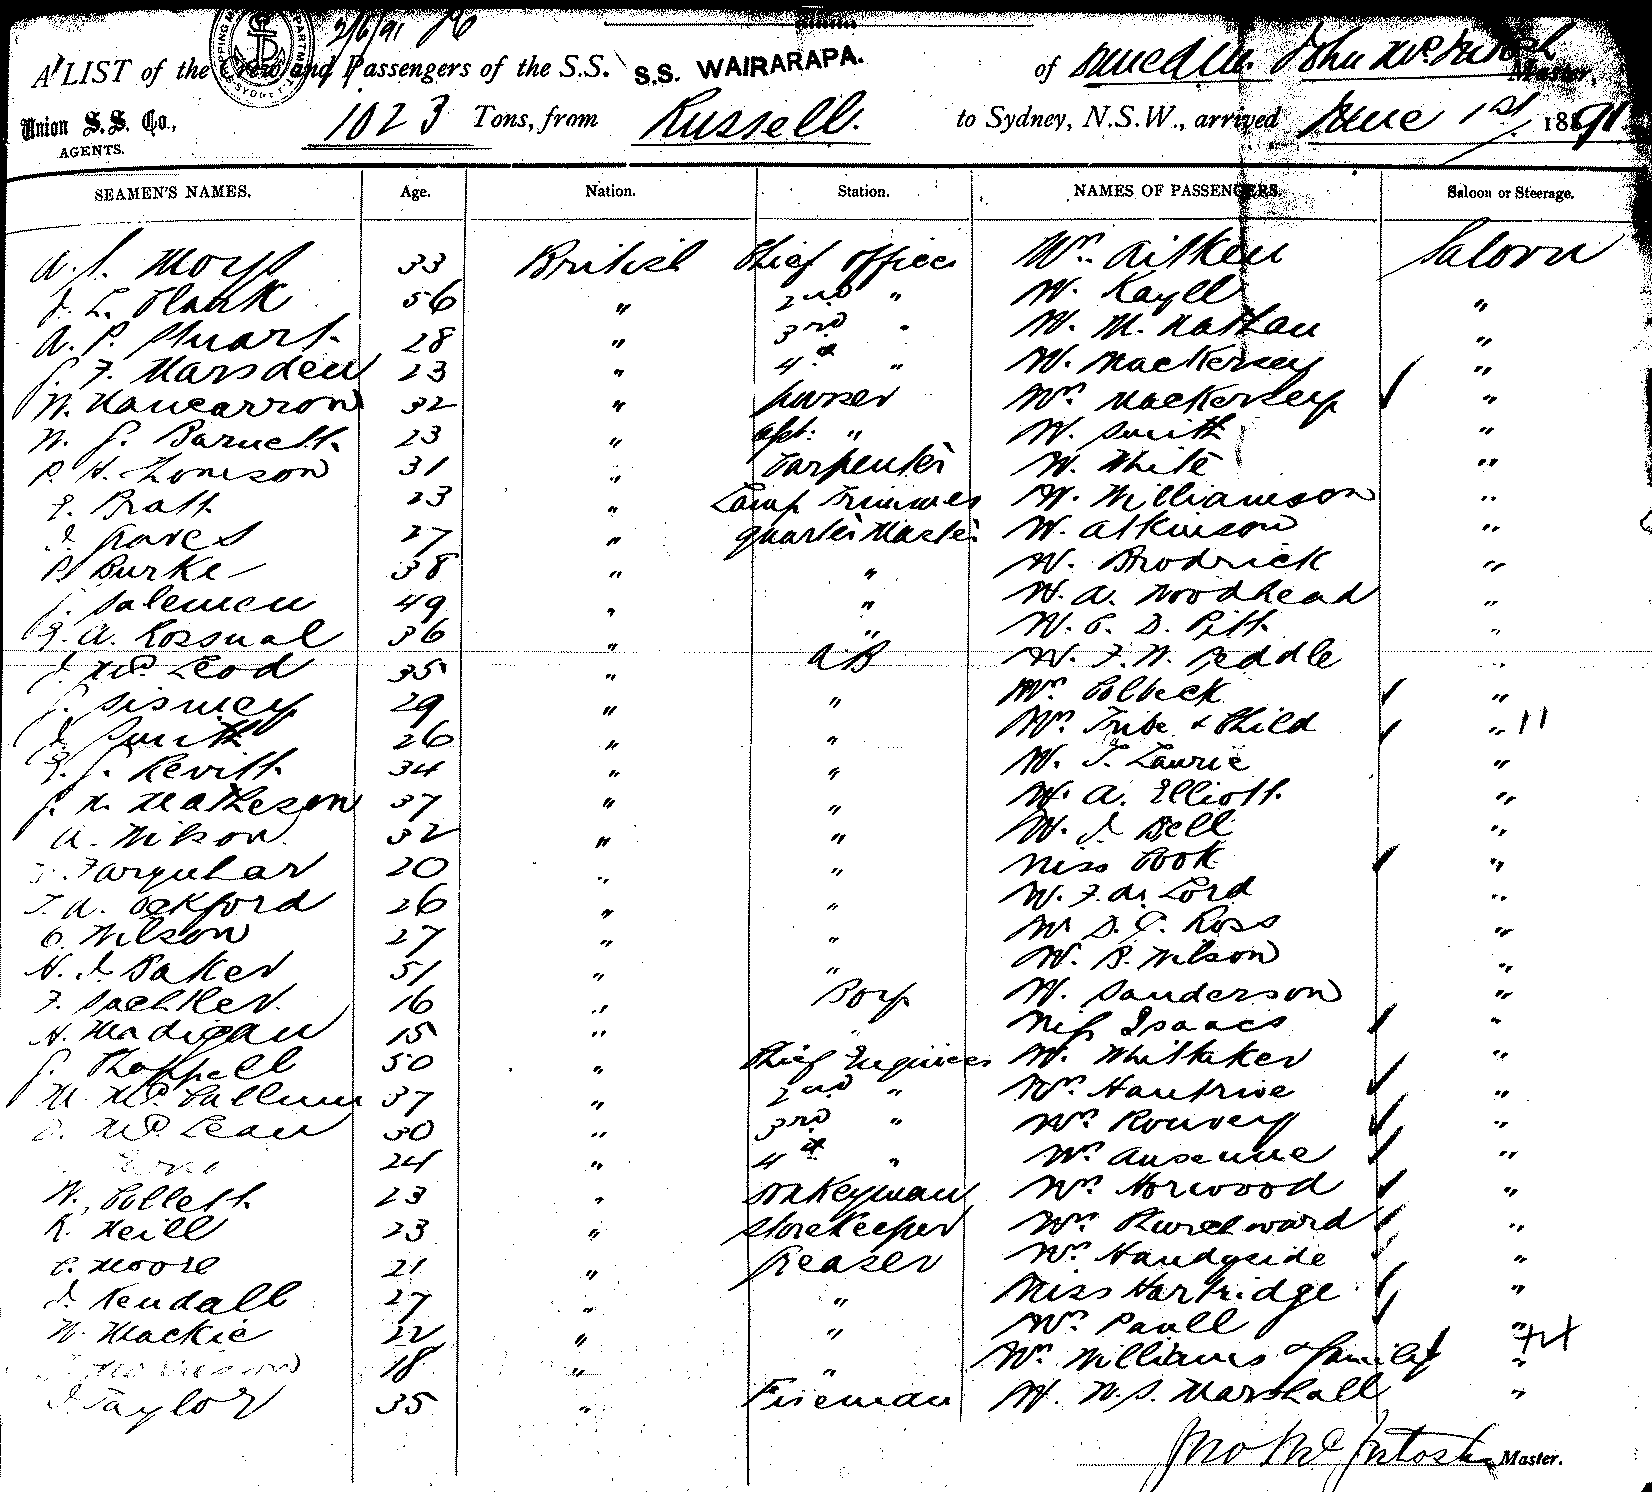 2/6/91
A LIST of the Crew and Passengers of the S.S. S.S. WAIRARAPA. of Dunedin. John McIntosh Master,
Union S.S. Co., AGENTS. 1023 Tons, from Russell. to Sydney, N.S.W., arrived June 1st 1891
SEAMEN'S NAMES. Age. Nation. Station. NAMES OF PASSENGERS. Saloon or Steerage.
33 British Chief Officer Mrs. Aitken Saloon
56 " 2nd " Mr. Kayll "
A. P. Stuart. 28 " 3rd " Mr. M. Nathan "
F. Marsden 23 " 4th " Mr. Mackersey "
32 " purser Mrs Mackersey "
W. G. Barnett. 23 " asst: " Mr. Smith "
P. H. Thomson 31 " Carpenter Mr. White "
Pratt 23 " Lamp Trimmer Mr. Williamson "
J. Graves 27 " Quarter Master Mr. Atkinson "
P. Burke 38 " " Mr. Brodrick "
49 " " Mr. A. Woodhead "
A. 36 " " Mr. C. D. Pitt. "
J. McLeod 35 " AB Mr. F. W. Peddle "
29 " " Mrs Colbeck "
J. Smith 26 " " Mrs. Tribe & Child " 11
Kevitt. 34 " " Mr. T. Laurie "
Matheson 37 " " Mr. A. Elliott. "
A. 32 " " Mr. J. Bell "
Farquhar 20 " " Miss Cook "
T. A. Ockford 26 " " Mr. F. Lord "
C. Wilson 27 " " Mr D. Ross "
H. J. Baker 51 " " Mr. B. Wilson "
F. 16 " Boy Mr. Sanderson "
H. Madigan 15 " " Miss Isaacs "
Chappell 50 " Chief Engineer Mr. Whittaker "
McCallum 37 " 2nd " Mrs. "
McLean 30 " 3rd " Mrs Rouvery "
24 " 4th " Mrs. Ausenne "
W. Collett. 23 " Donkeyman Mrs. Horwood "
Neill 23 " Storekeeper Mrs. Churchward "
C. Moore 21 " Greaser Mrs. Handyside "
J. Kendall 27 " " Miss Hartridge "
W. Mackie 22 " " Mrs. Paull "
18 " " Mrs. Williams & family "
J. Taylor 35 " Fireman Mr. W. S. Marshall "
Jno McIntosh Master.